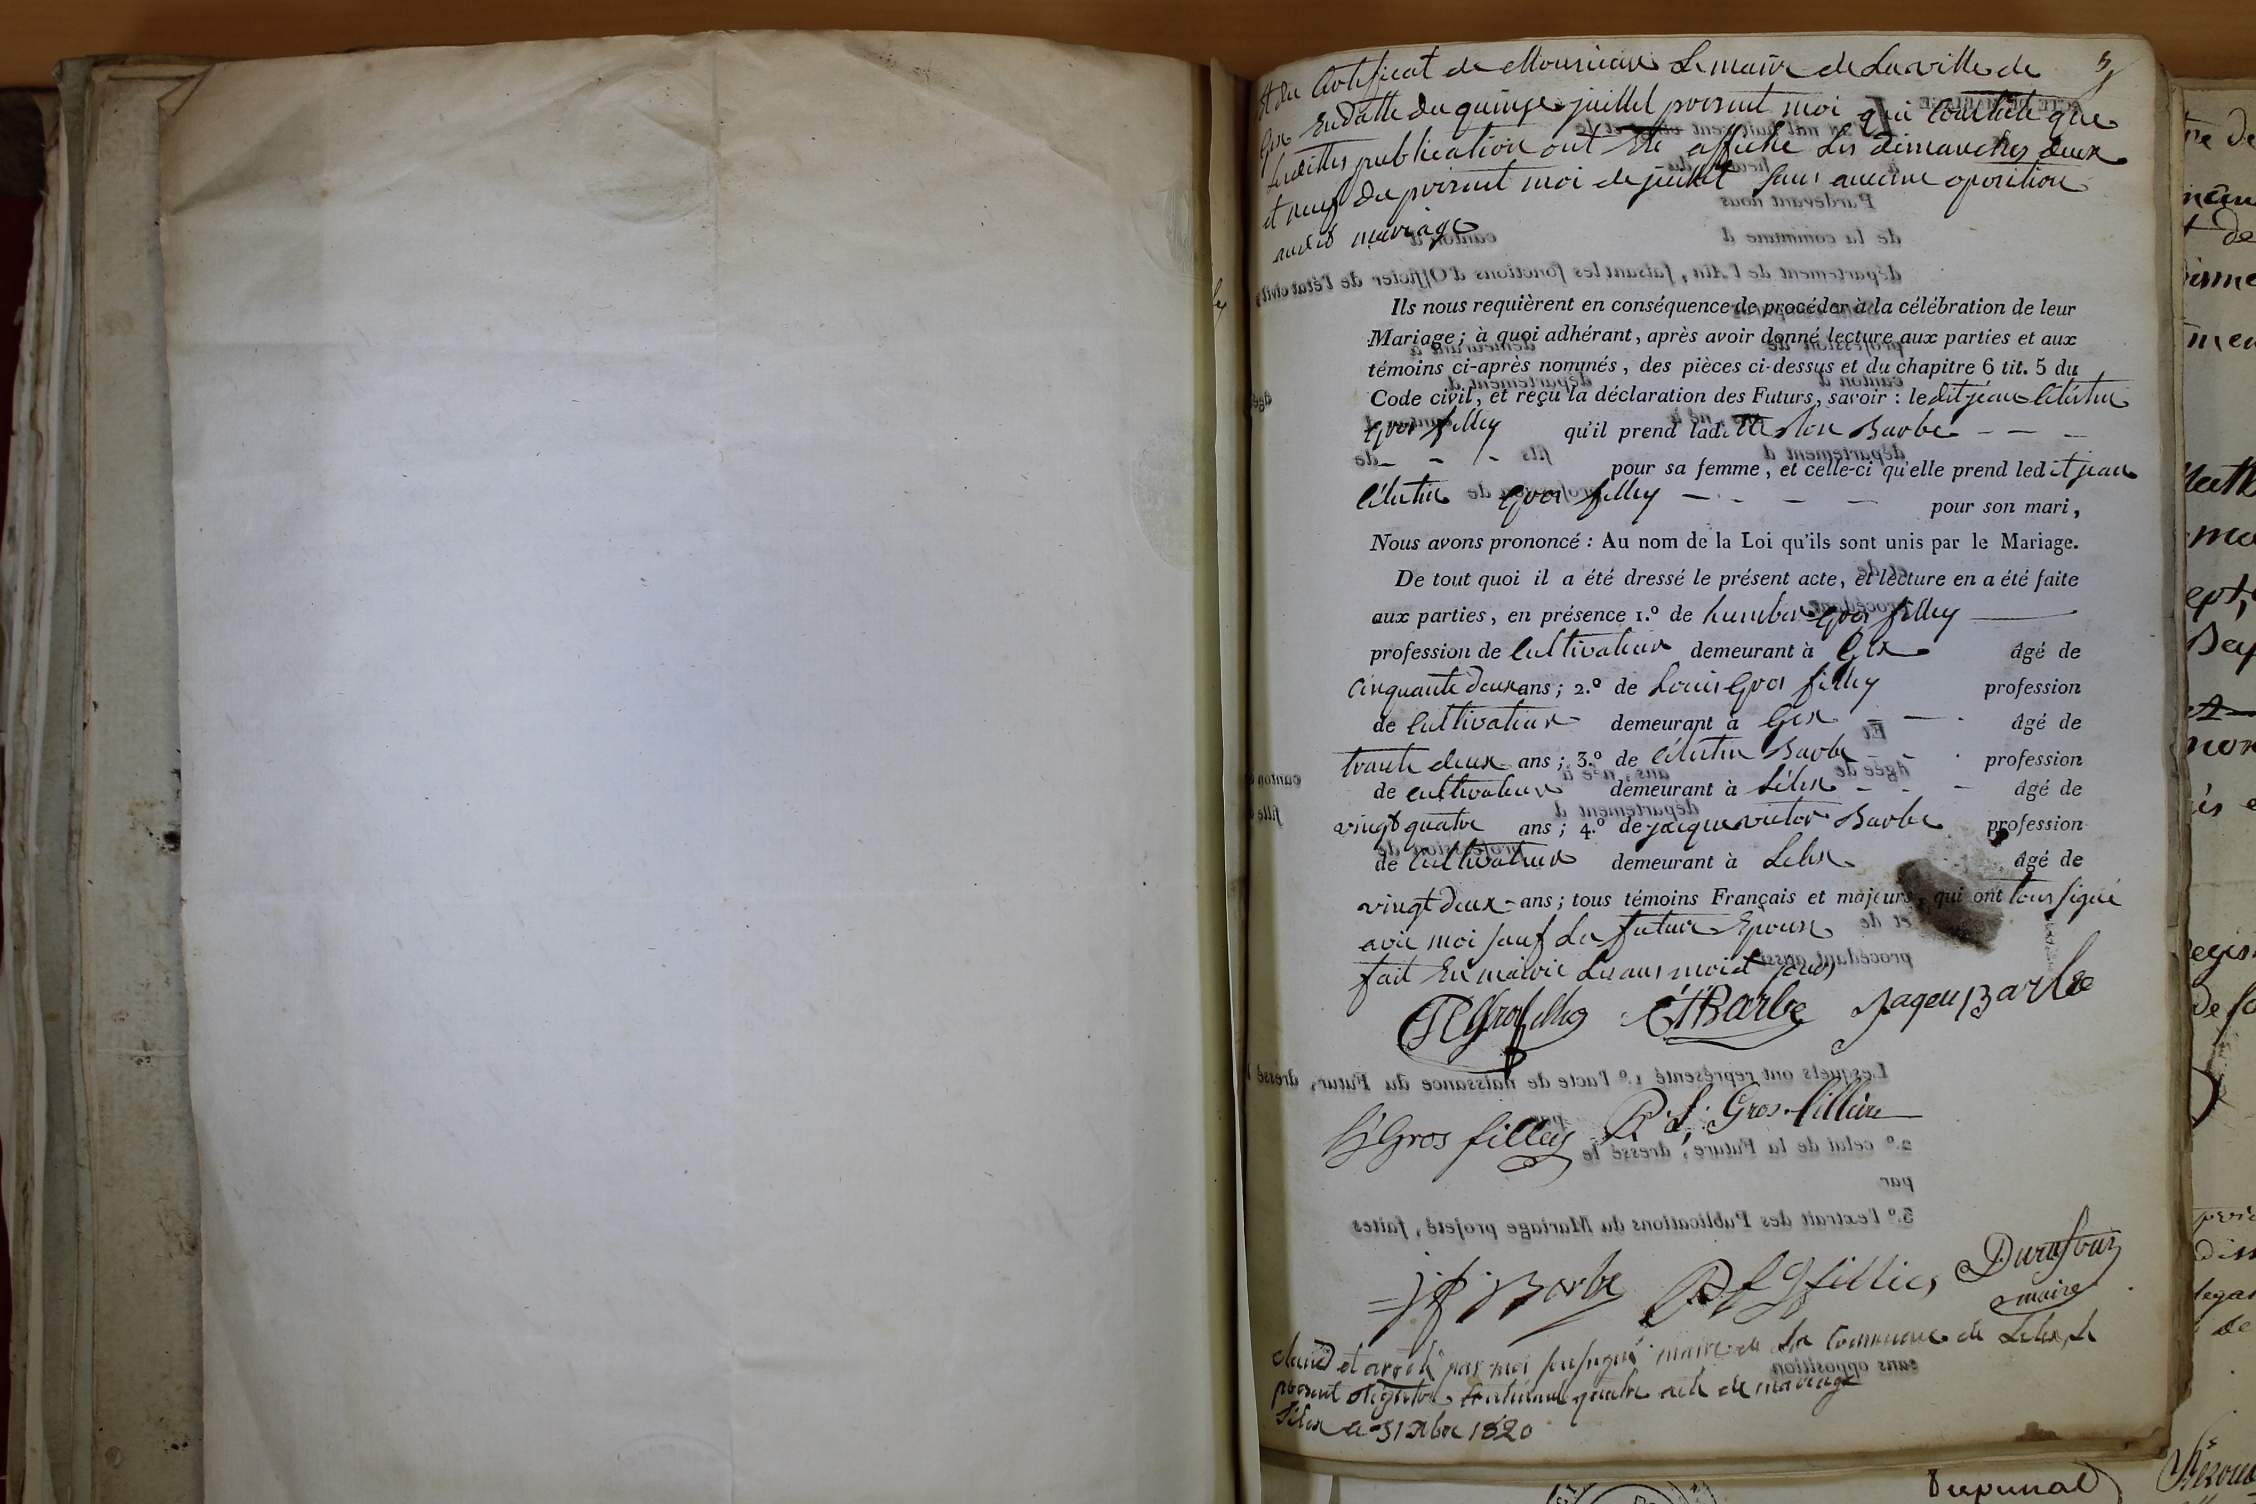 5
et du Certificat de Monsieur Le maire de La ville de
Gex En datte du quinze juillet présent moi qui Constate que
Lesdittes publication ont Eté affiché Les dimanches deux
et neuf du présent moi de juillet sans aucune oposition
audit mariage
Ils nous requièrent en conséquence de procéder à la célébration de leur
Mariage; à quoi adhérant, après avoir donné lecture aux parties et aux
témoins ci-après nommés, des pièces ci-dessus et du chapitre 6 tit. 5 du
Code civil, et reçu la déclaration des Futurs, savoir : ledit jean Célestin
Gros filley qu'il prend laditte Barbe - - -
- - - pour sa femme, et celle-ci qu'elle prend ledit jean
Célestin Gros filley - - - - pour son mari,
Nous avons prononcé : Au nom de la Loi qu'ils sont unis par le Mariage.
De tout quoi il a été dressé le présent acte, et lecture en a été faite
aux parties, en présence 1.º de humber Gros filley
profession de Cultivateur demeurant à Gex âgé de
Cinquante deux ans; 2.º de Louis Gros filley profession
de Cultivateur demeurant à Gex - - - âgé de
trante deux ans; 3.º de Célestin Barbe - - profession
de cultivateur demeurant à Lélex - - - âgé de
vingt quatre ans; 4.º de jacque victor Barbe profession
de Cultivateur demeurant à Lelex âgé de
vingt deux - ans; tous témoins Français et majeurs, qui ont tous signé
avec moi sauf La future Epouse
fait En mairie Les ans moi et jours
Barbe Jaques Barbe
Gros filley Gros-fillier
Barbe
maire
Claus et arrété par moi sousigné maire de La Commune de Lelex, Le
présent Registre Contenant quatre acte de mariage
Lélex Le 31 Xbre 1820